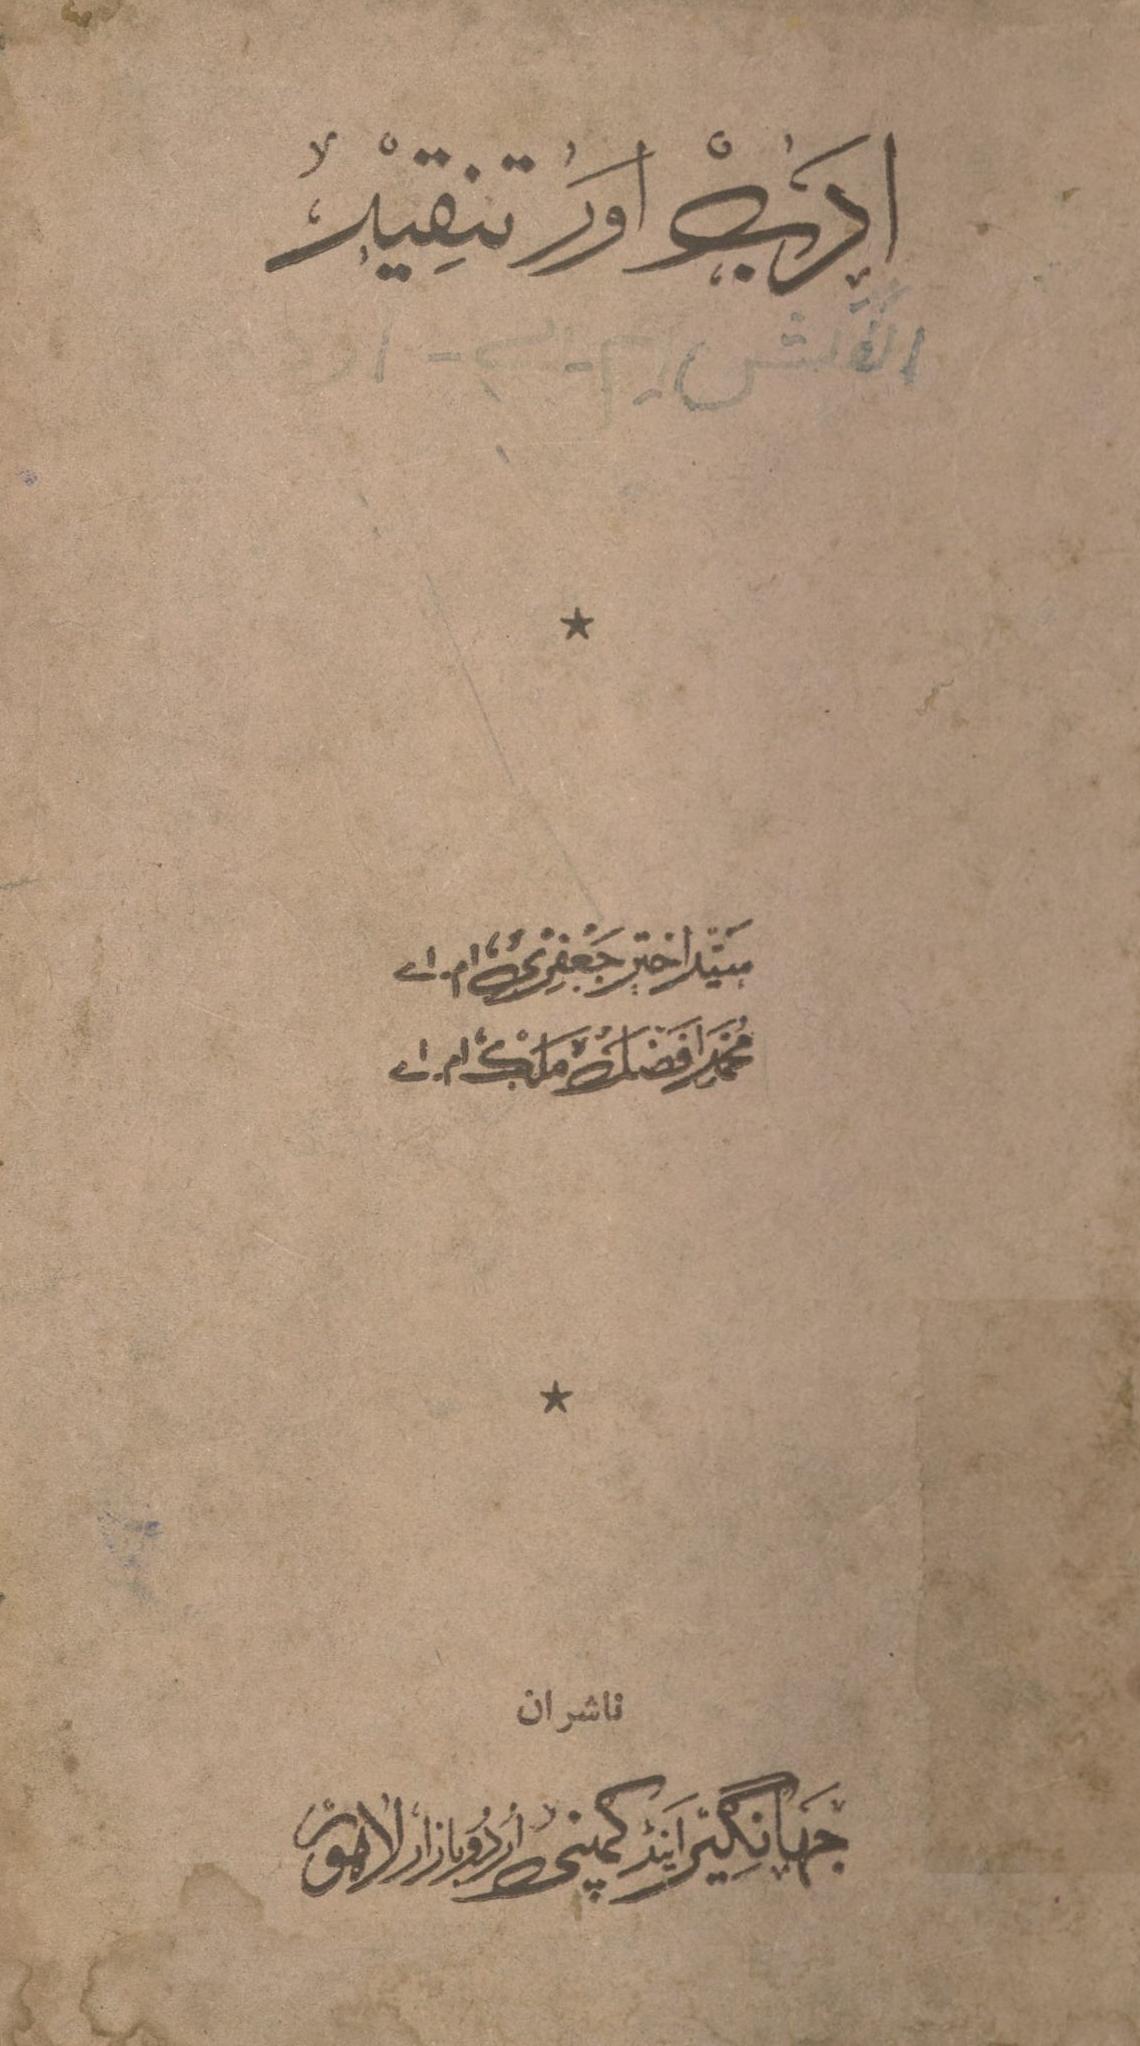 ادب اور تنقید
سید اختر جعفری ام۔ اے
محمد افضل ملک ام۔ اے
ناشران
جہانگیر اینڈ کمپنی اردو بازار لاہور